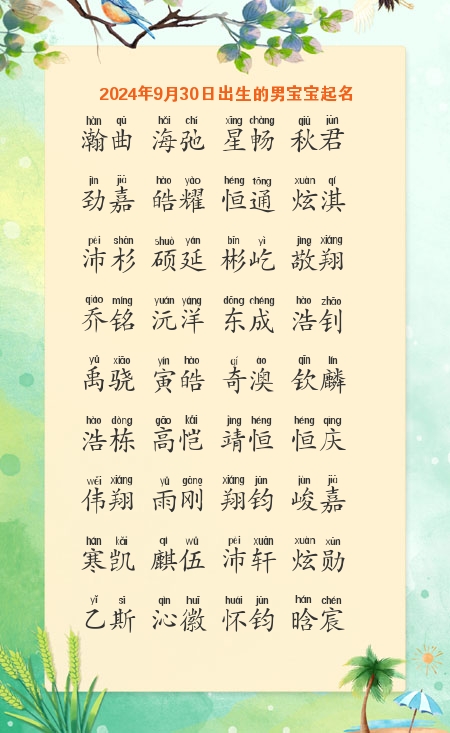 2024年9月30日出生的男宝宝起名
hàn qū hǎi chí xīng chàng qiū jūn
瀚曲 海弛 星畅 秋君
jìn jiā hào yào héng tōng xuàn qí
劲嘉 皓耀 恒通 炫淇
pèi shān shuò yán bīn yì jìng xiáng
沛杉 硕延 彬屹 敬翔
qiáo míng yuán yáng dōng chéng hào zhāo
乔铭 沅洋 东成 浩钊
yǔ xiāo yín hào qí ào qīn lín
禹骁 寅皓 奇澳 钦麟
hào dòng gāo kǎi jìng héng héng qìng
浩栋 高恺 靖恒 恒庆
wěi xiáng yǔ gāng xiáng jūn jùn jiā
伟翔 雨刚 翔钧 峻嘉
hán kǎi qí wǔ pèi xuān xuàn xūn
寒凯 麒伍 沛轩 炫勋
yǐ sī qìn huī huái jūn hán chén
乙斯 沁徽 怀钧 晗宸